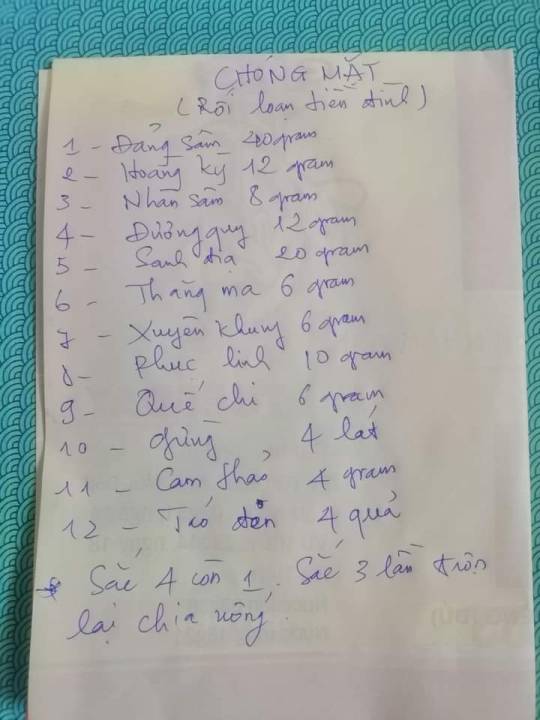 CHÓNG MẶT
(Rối loạn tiền đình)
1 - Đảng sâm 40 gram
2 - Hoàng kỳ 12 gram
3 - Nhân sâm 8 gram
4 - Đương quy 12 gram
5 - Sanh địa 20 gram
6 - Thăng ma 6 gram
7 - Xuyên khung 6 gram
8 - Phục linh 10 gram
9 - Quế chi 6 gram
10 - gừng 4 lát
11 - Cam thảo 4 gram
12 - Táo đen 4 quả
Sắc 4 còn 1. Sắc 3 lần trộn
lại chia uống.